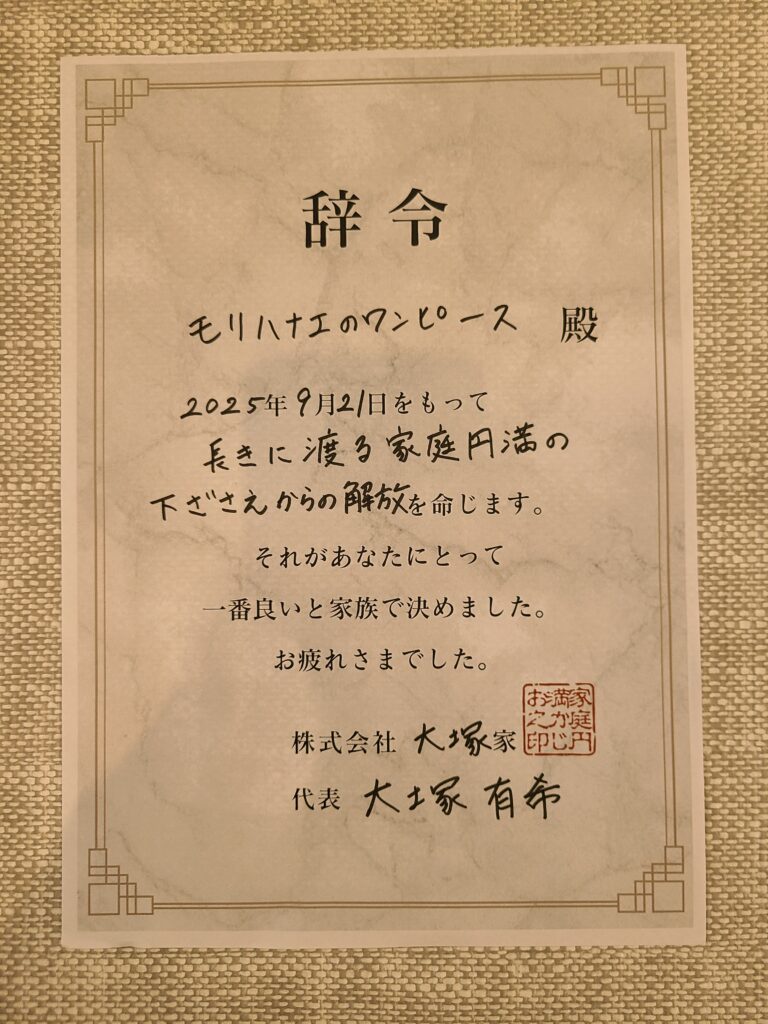 辞令
モリハナエのワンピース 殿
2025年9月21日をもって
長きに渡る家庭円満の
下ざさえからの解放を命じます。
それがあなたにとって
一番良いと家族で決めました。
お疲れさまでした。
株式会社 大塚家
代表 大塚 有希
家庭円
満かじ
お之印